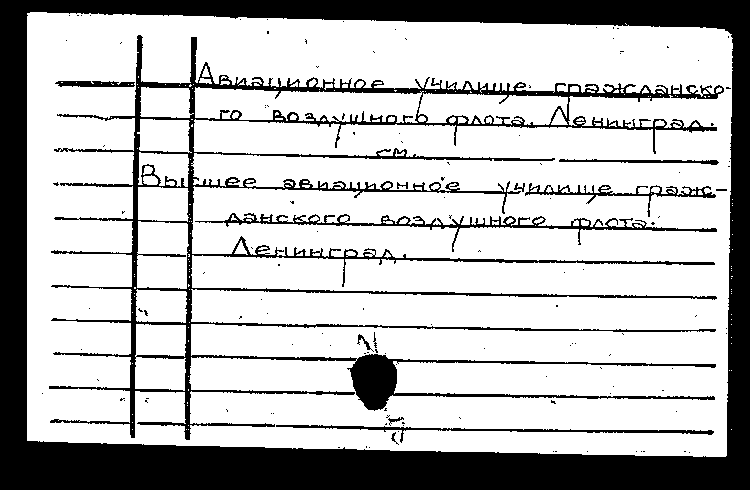 Авиационное училище гражданско-
го воздушного флота. Ленинград.
см.
Высшее авиационное училище граж-
данского воздушного флота.
Ленинград.